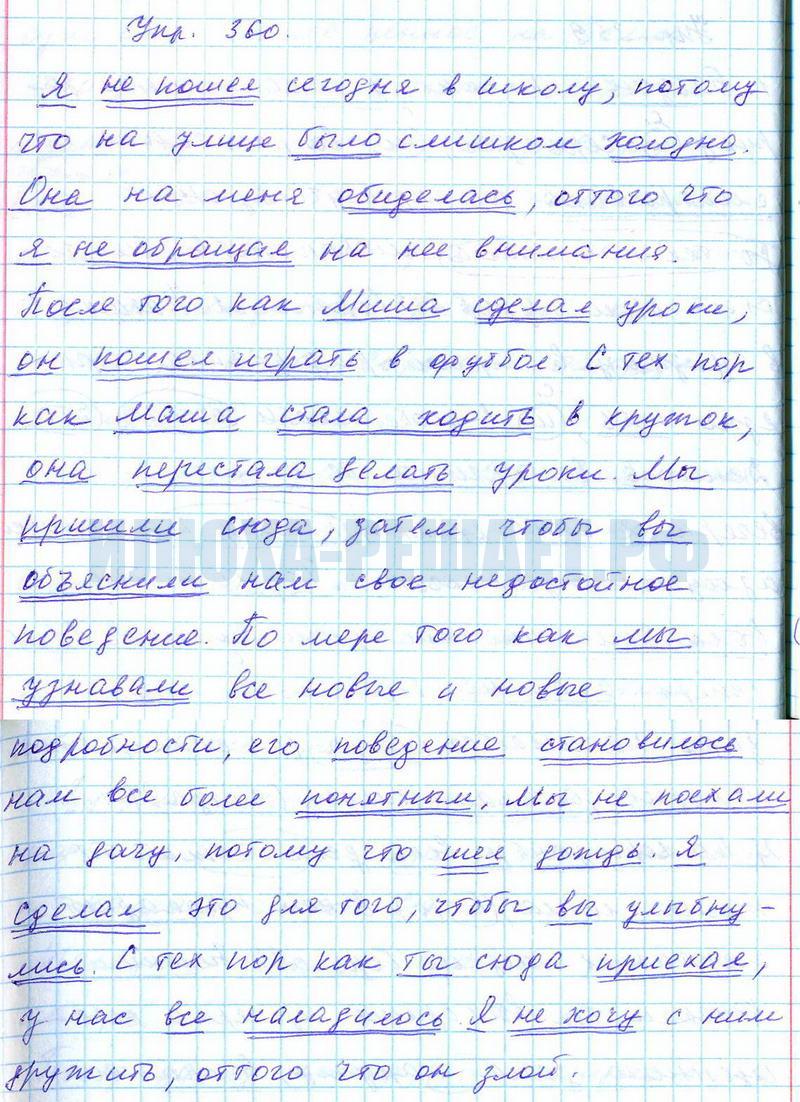 Упр. 360.
Я не пошел сегодня в школу, потому
что на улице было слишком холодно.
Она на меня обиделась, оттого что
я не обращал на нее внимания.
После того как Миша сделал уроки,
он пошел играть в футбол. С тех пор
как Маша стала ходить в кружок,
она перестала делать уроки. Мы
пришли сюда, затем чтобы вы
ИЛЮХА-РЕШАЕТ.РФ
объяснили нам свое недостойное
поведение. По мере того как мы
узнавали все новые и новые
подробности, его поведение становилось
нам все более понятным. Мы не поехали
на дачу, потому что шел дождь. Я
сделал это для того, чтобы вы улыбну-
лись. С тех пор как ты сюда приехал,
у нас все наладилось. Я не хочу с ним
дружить, оттого что он злой.